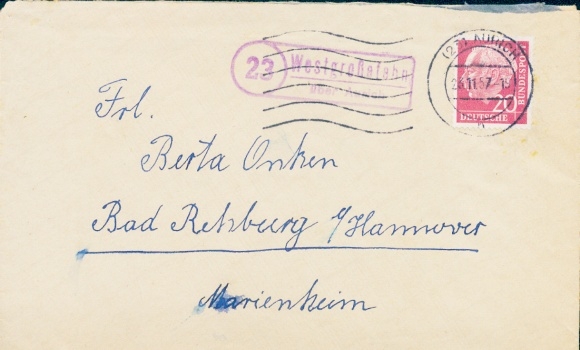 23
Westgroßefehn
über Aurich
(23) AURICH
26.11.57.-1
h
20
DEUTSCHE
BUNDESPOST
Frl.
Berta Onken
Bad Rehburg b/Hannover
Marienheim